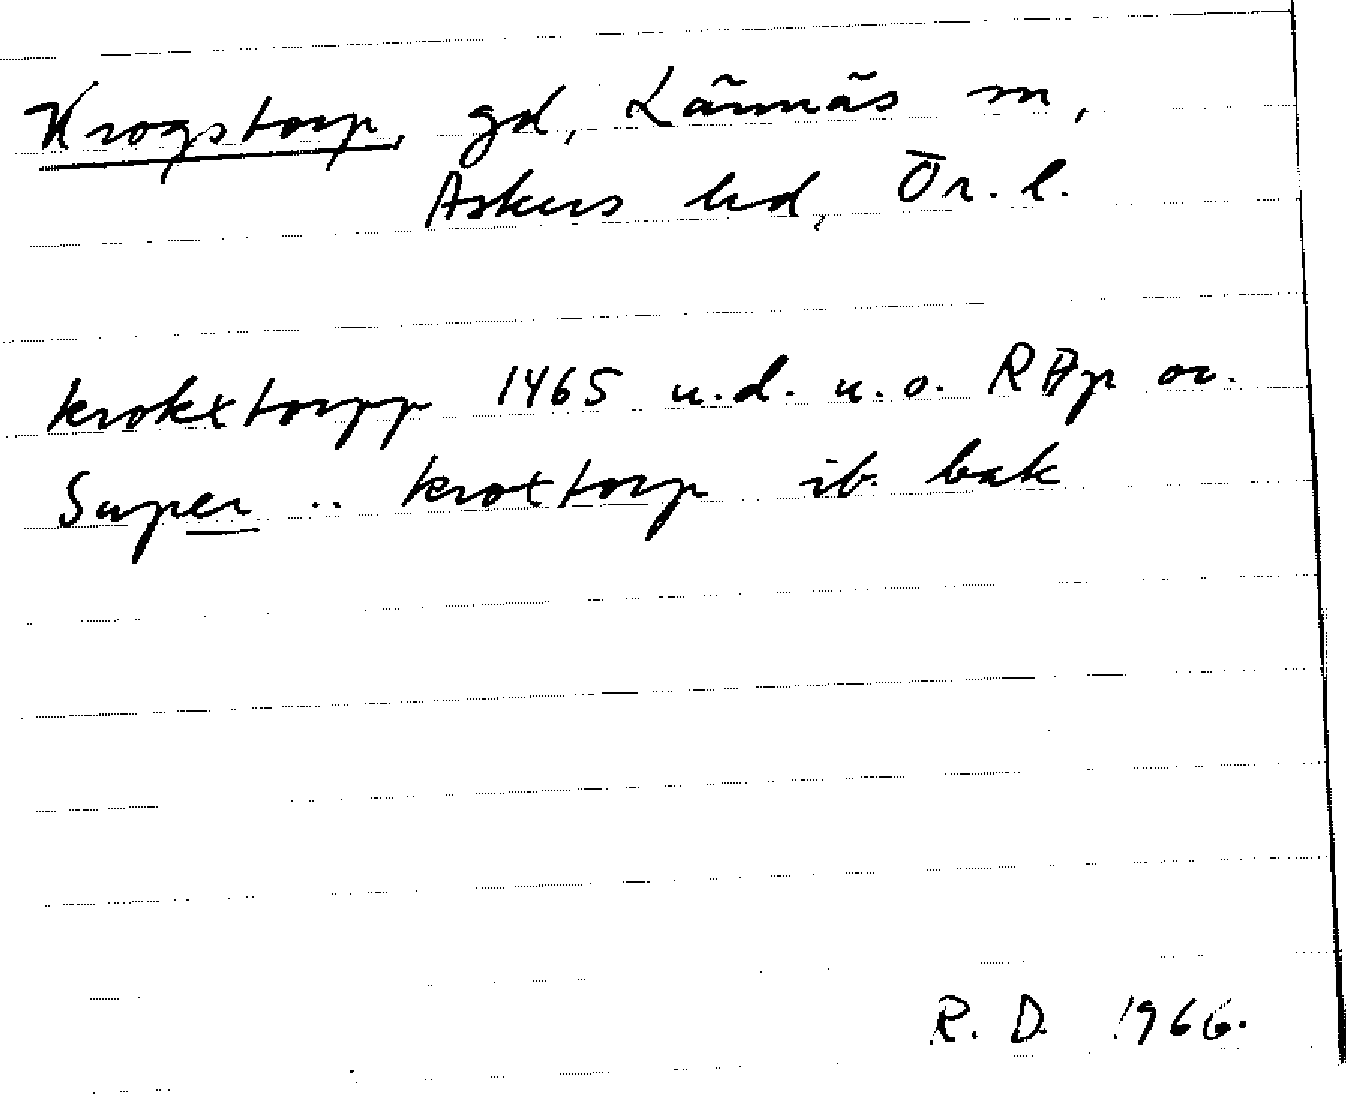 Krogstorp, gd, Lännäs sn,
Askers hd, Ör. l.
krokxtorpp 1465 u.d. u.o. RAp or.
Super .. kroxtorp ib. bak
R. D. 1966.